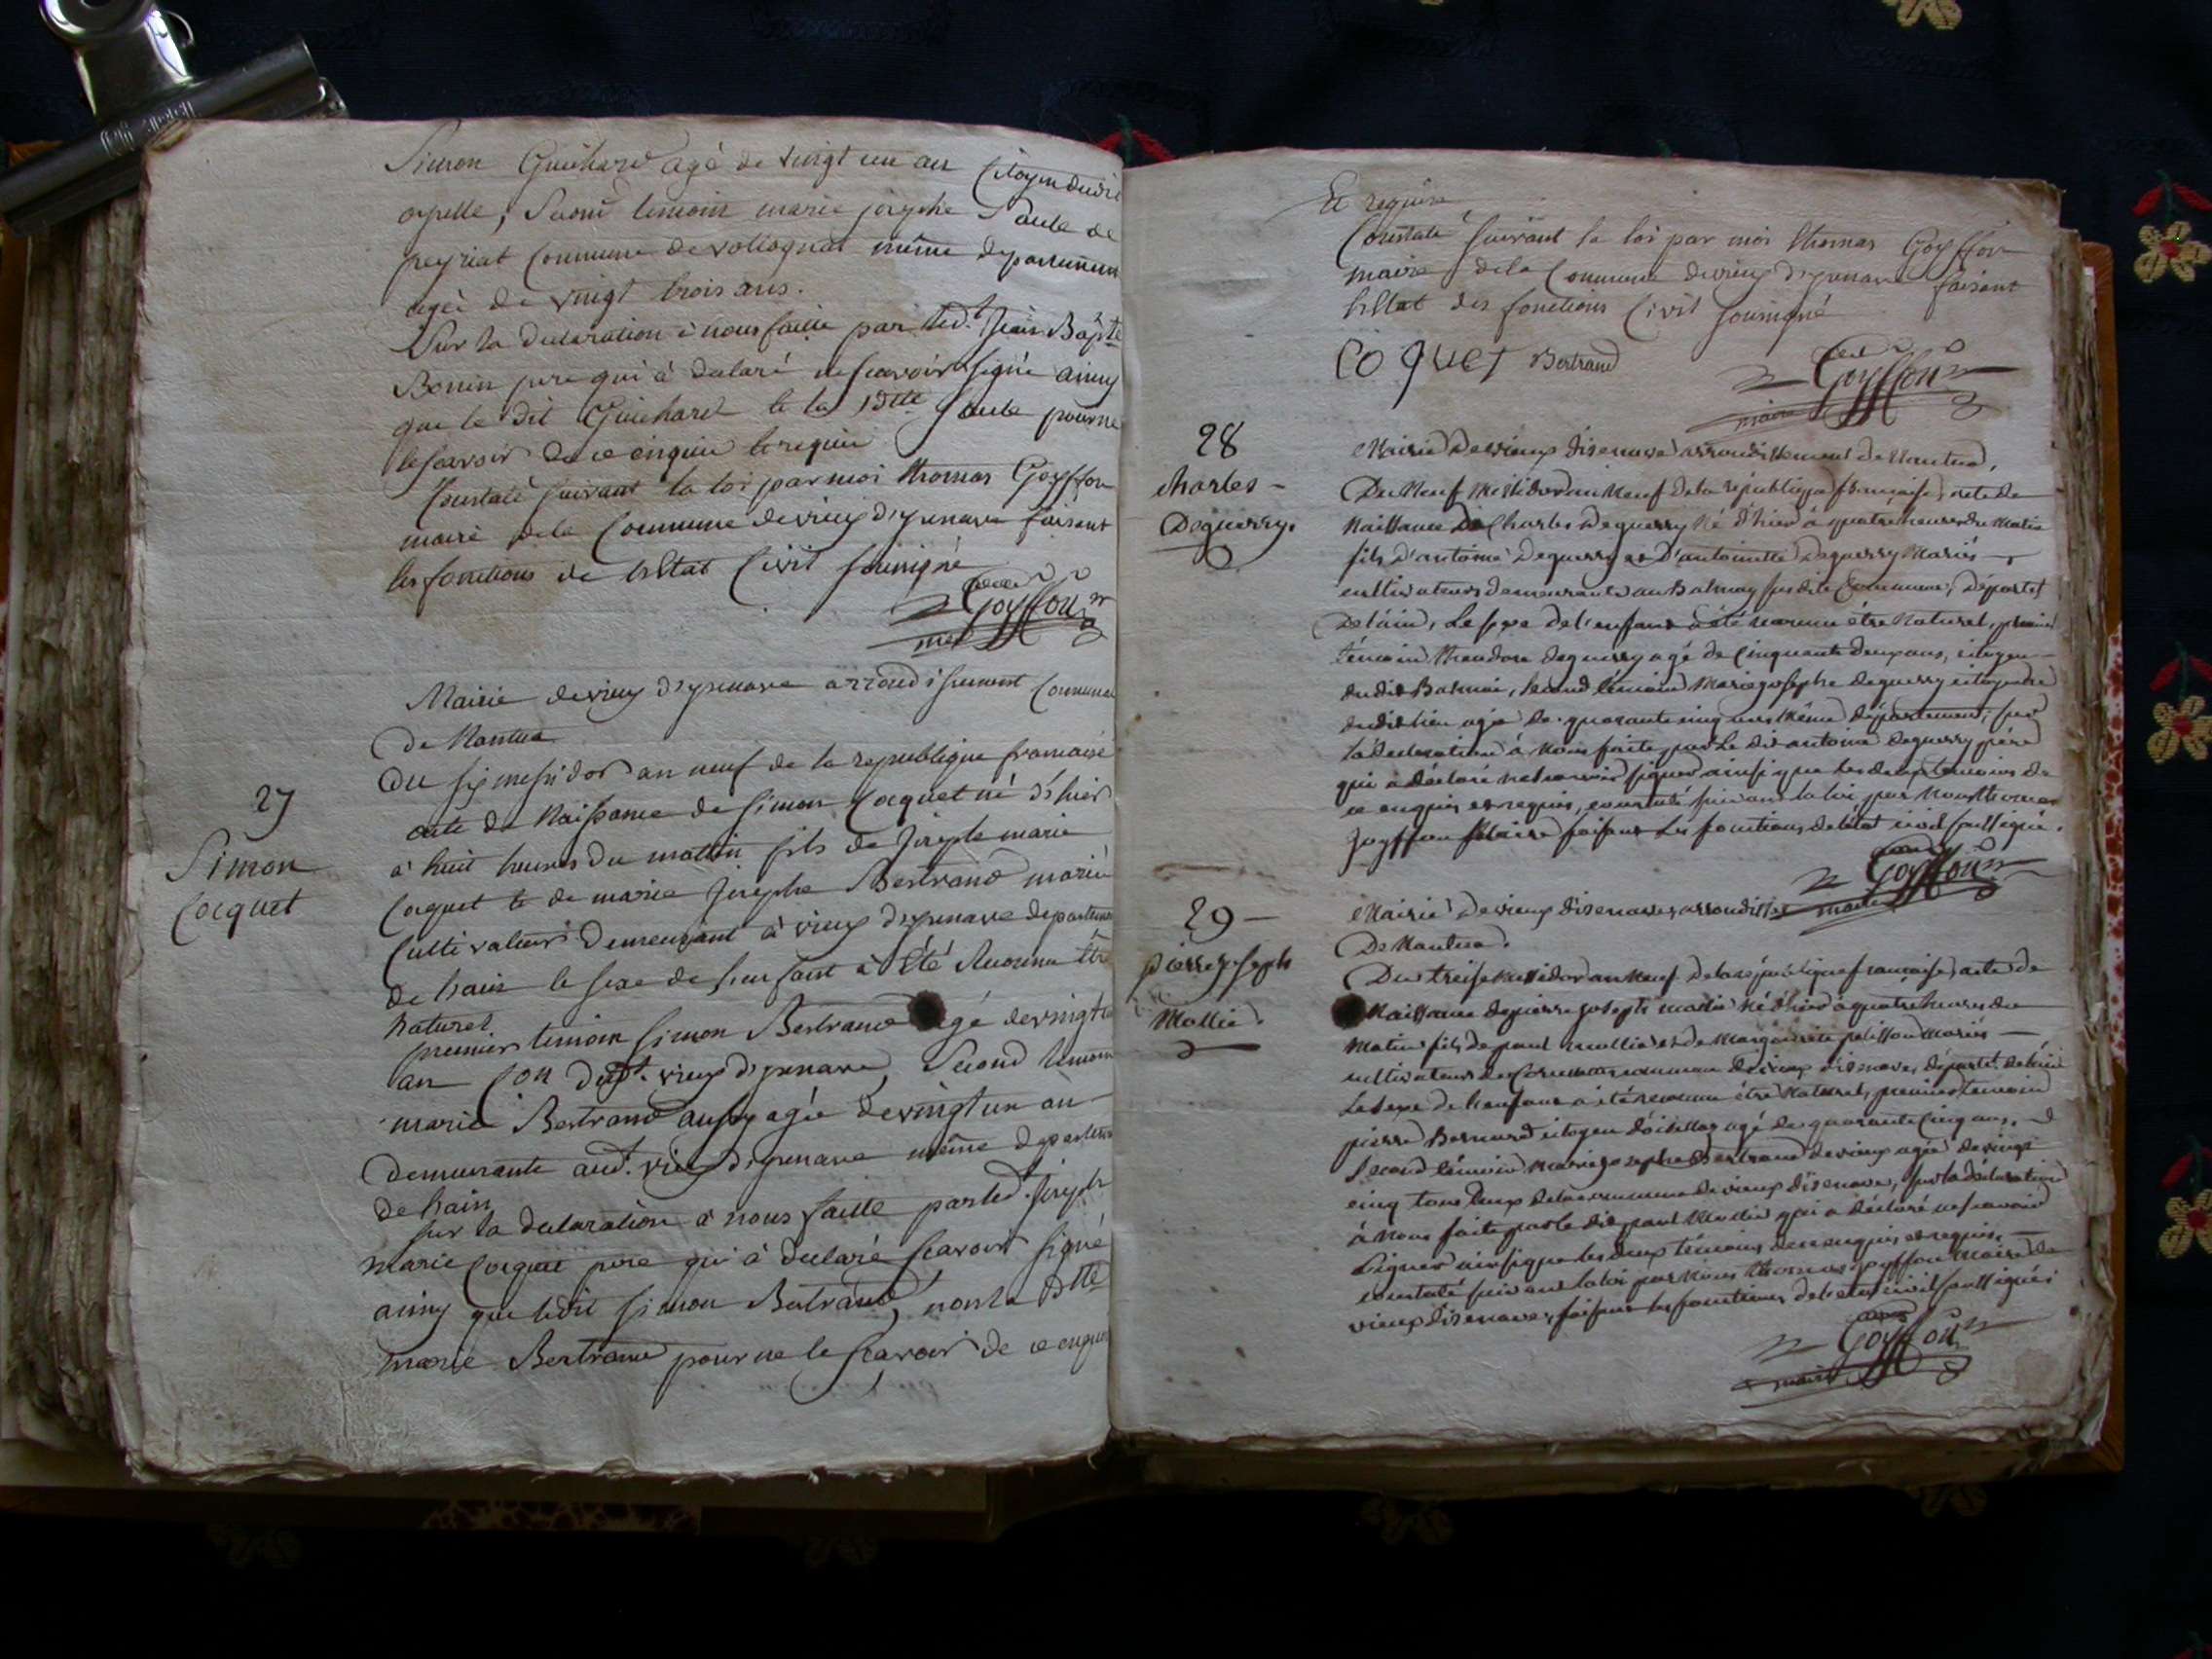 Simon Guichard agé de vingt un an Citoyen
apelle, Second temoin marie josephe Paule de
peyriat Commune de volognat même departement
agée de vingt trois ans.
Sur la declaration à nous faitte par led.t Jean Bapte
Bonin pere qui à declaré ne scavoir signé ainsy
que le dit Guichard et la ditte paule pour ne
le scavoir de ce enquis et requis
Constaté suivant la loi par moi thomas Goyffon
maire de la Commune de vieux d'yzenave faisant
les fonctions de letat Civil soussigné
Goyffon
Mairie de vieux d'yzenave arrondissement Communal
de Nantua
27
Simon
Cocquet
Du six messidor an neuf de la republique francaise
acte de Naissance de Simon Cocquet né d'hier
à huit heures du matin fils de Joseph marie
Cocquet et de marie Josephe Bertrand marié
Cultivateur demeurant à vieux d'yzenave departement
de lain le sexe de lenfant à été reconnu être
naturel
premier temoin Simon Bertrand agé de vingt
an dud.t vieux d'yzenave, Second temoin
marie Bertrand aussy agée de vingt un an
demeurante aud.t vieux d'yzenave même departement
de lain
sur la declaration à nous faitte par led.t Joseph
marie Cocquet pere qui à declaré scavoir signé
ainsy que ledit Simon Bertrand, non la ditte
marie Bertrand pour ne le scavoir de ce enquis
Et requise
Constaté suivant la loi par moi thomas Goyffon
maire de la Commune de vieux d'yzenave faisant
letat des fonctions Civil soussigné
COQUET Bertrand
Goyffon
maire
28
Charles
Deguerry.
Mairie de vieux disenave arrondissement de Nantua.
Du Neuf Messidor an Neuf de la république française, acte de
Naissance de Charles Deguerry Né d'hier à quatre heures du Matin
fils d'antoine Deguerry et D'antoinette Deguerry Mariés
cultivateurs demeurants au Balmay susdite Commune, départet
De l'ain, Le sexe de l'enfant a été reconnu être Naturel, premier
témoin theodore deguerry agé de Cinquante deux ans, citoyen
dudit Balmai, second témoin Marie josephe deguerry citoyenne
dudit lieu agée de quarante cinq ans même département, sur
la déclaration à Nous faite par Le dit antoine deguerry pére
qui a déclaré ne scavoir signer ainsi que les deux témoins de
ce enquis et requis, constaté suivant la loi, par Nous thomas
goyffon Maire faisant les fonctions de létat civil soussigné.
Goyffon
maire
29
pierre joseph
Mollie.
Mairie de vieux disenave, arrondisst
De Nantua.
Du treise Messidor an Neuf de la république française, acte de
Naissance de pierre joseph mollie Né d'hier à quatre heures du
Matin fils de paul mollie et de Marguerite pelisson Mariés
cultivateurs de commune de vieux disenave, départt. de l'ain
Le sexe de lenfant a été reconnu être Naturel, premier témoin
pierre Bernard citoyen agé de quarante Cinq ans,
second témoin Marie josephe Bertrand de vieux agée de vingt
cinq tous deux de la commune de vieux disenave, sur la déclaration
à Nous faite par le dit paul Mollie qui a déclaré ne scavoir
signer ainsi que les deux témoins de ce enquis et requis,
constaté suivant la loi par Nous thomas goyffon maire de
vieux disenave, faisant les fonctions de letat civil soussigné.
Goyffon
maire